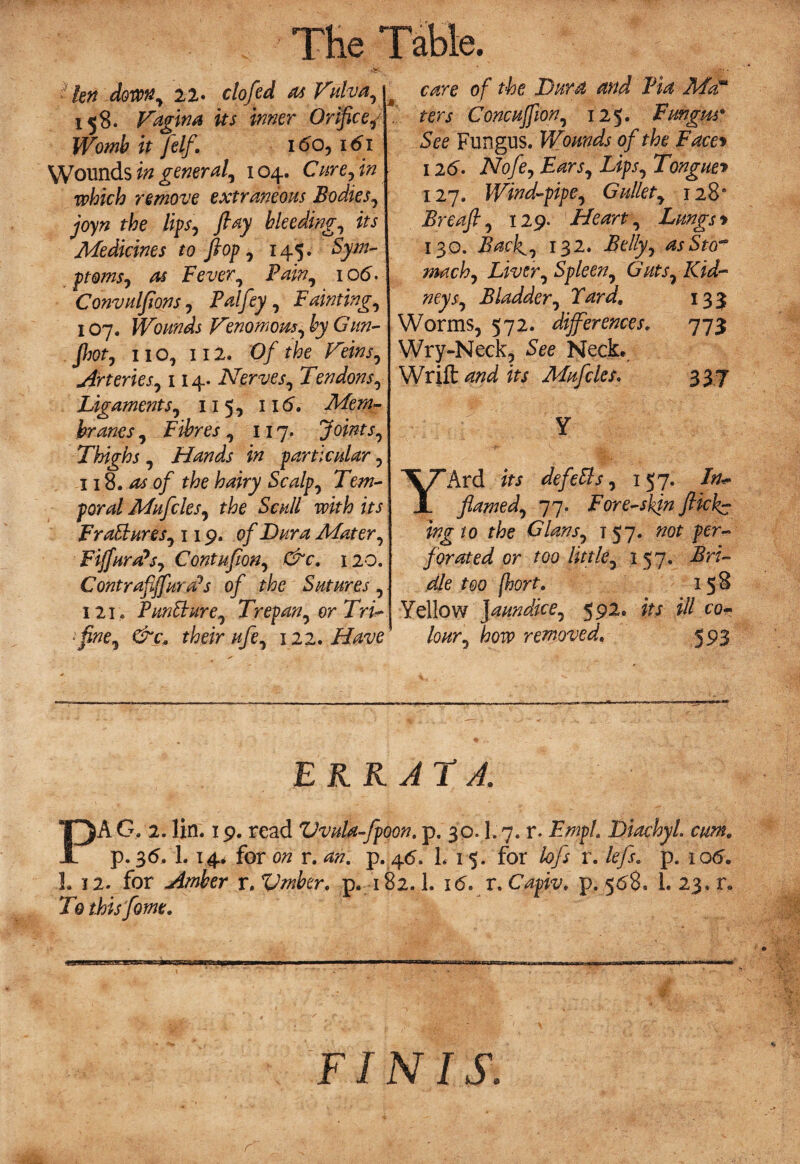 The Table.
len down, 22. closed as Vulva,
158. Vagina its inner Orifice,
Womb it self. 160, 161
Wounds in general, 104. Cure, in
which remove extraneous Bodies,
joyn the lips, stay bleeding, its
Medicines to stop, 145. Sym-
ptoms, as Fever, Pain, 106.
Convulsions, Palsey, Fainting,
107. Wounds Venomous, by Gun-
shot, 110, 112. Of the Veins,
Arteries, 114. Nerves, Tendons,
Ligaments, 115, 116. Mem-
branes, Fibres, 117. Joints,
Thighs, Hands in particular,
118. as of the hairy Scalp, Tem-
poral Muscles, the Scull with its
Fractures, 119. of Dura Mater,
Fissura's, Contusion, &c. 120.
Contrafissura's of the Sutures,
121. Puncture, Trepan, or Tri-
fine, &c. their use, 122. Have
care of the Dura and Pia Ma-
ters Concussion, 125. Fungus.
See Fungus. Wounds of the Face,
126. Nose, Ears, Lips, Tongue,
127. Wind-pipe, Gullet, 128.
Breast, 129. Heart, Lungs,
130. Back, 132. Belly, as Sto-
mach, Liver, Spleen, Guts, Kid-
neys, Bladder, Yard. 133
Worms, 572. differences. 773
Wry-Neck, See Neck.
Wrist and its Muscles. 337
Y
YArd its defects, 157. In-
flamed, 77. Fore-skin stick-
ing to the Glans, 157. not per-
forated or too little, 157. Bri-
dle too short. 158
Yellow Jaundice, 592. its ill co-
lour, how removed. 593
ERRATA.
PAG. 2. lin. 19. read Uvula-spoon. p. 30. l. 7. r. Empl. Diachyl. cum.
p. 36. l. 14. for on r. an. p. 46. l. 15. for loss r. less. p. 106.
l. 12. for Amber r. Umber. p. 182. l. 16. r. Capiv. p. 568. l. 23. r.
To this some.
FINIS.